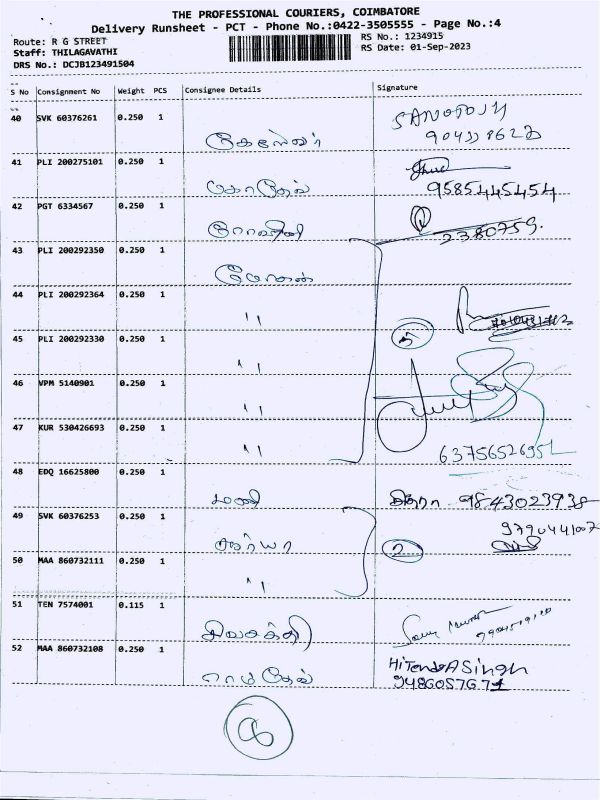 THE PROFESSIONAL COURIERS, COIMBATORE
Delivery Runsheet - PCT - Phone No.:0422-3505555 - Page No.:4
Route: R G STREET
RS No.: 1234915
Staff: THILAGAVATHI
RS Date: 01-Sep-2023
DRS No.: DCJB123491504
S No Consignment No Weight PCS Consignee Details Signature
40 SVK 60376261 0.250 1
41 PLI 200275101 0.250 1
9585445454
42 PGT 6334567 0.250 1
2380759.
43 PLI 200292350 0.250 1
மோகன்
44 PLI 200292364 0.250 1
"
45 PLI 200292330 0.250 1
" 5
46 VPM 5140901 0.250 1
"
47 KUR 530426693 0.250 1
"
48 EDQ 16625800 0.250 1
மணி 9843023938
49 SVK 60376253 0.250 1
9790441007
சூர்யா 2
50 MAA 860732111 0.250 1
"
51 TEN 7574001 0.115 1
சிவசக்தி
52 MAA 860732108 0.250 1
HitendrA Singh
ராமதேவ் 9486057671